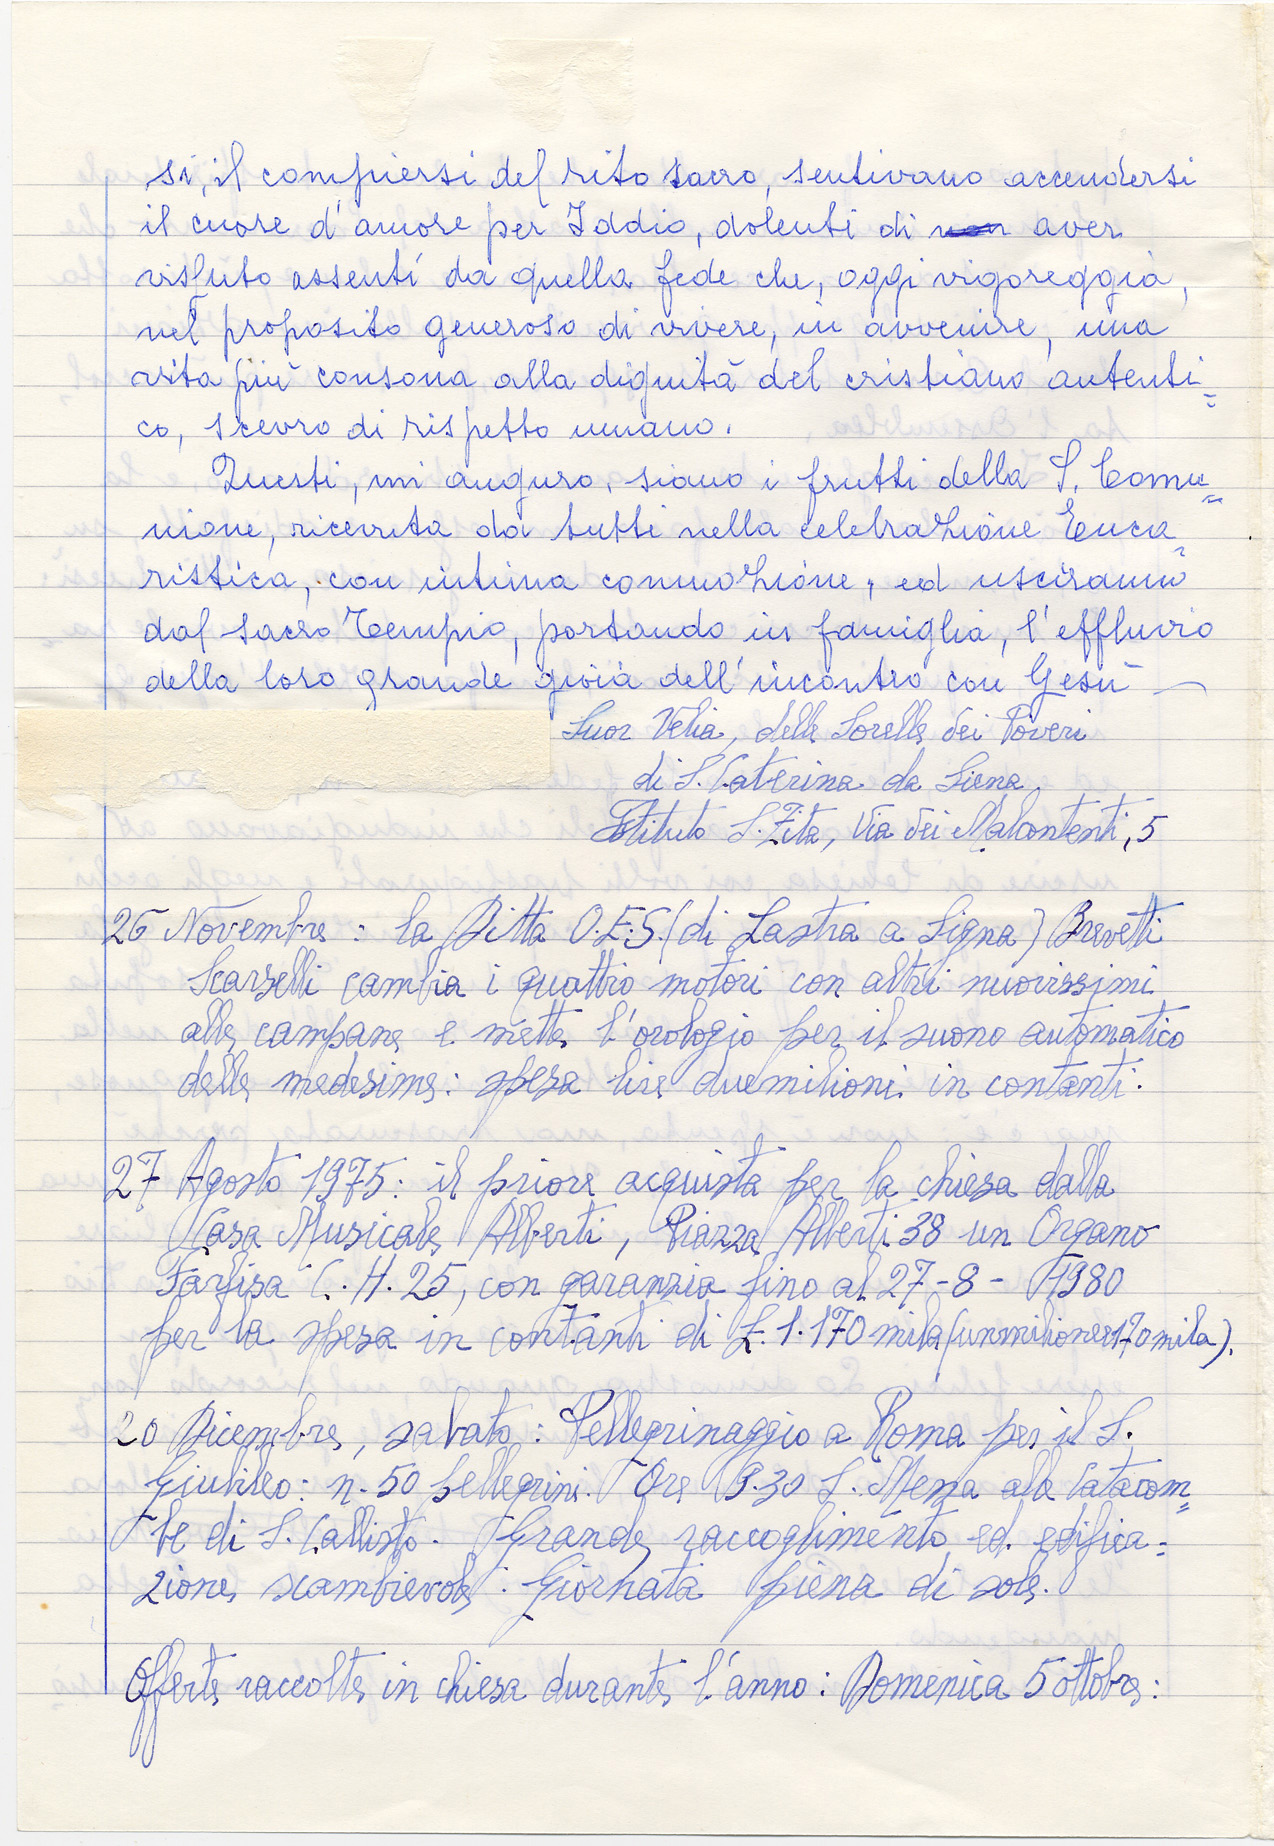 si, il compiersi del rito sacro, sentivano accendersi
il cuore d'amore per Iddio, dolenti di non aver
vissuto assenti da quella fede che, oggi vigoreggia,
nel proposito generoso di vivere, in avvenire, una
vita più consona alla dignità del cristiano autenti=
co, scevro di rispetto umano.
Questi, mi auguro, siano i frutti della S. Comu=
nione, ricevuta da tutti nella celebrazione Euca=
ristica, con intima commozione, ed usciranno
dal sacro Tempio, portando in famiglia, l'effluvio
della loro grande gioia dell'incontro con Gesù —
Suor Velia, delle Sorelle dei Poveri
di S. Caterina da Siena,
Istituto S. Zita, Via dei Malcontenti, 5
26 Novembre: la Ditta O.E.S. (di Lastra a Signa) Brevetti
Scarselli cambia i quattro motori con altri nuovissimi
alle campane e mette l'orologio per il suono automatico
delle medesime: spesa lire duemilioni in contanti.
27 Agosto 1975: il priore acquista per la chiesa dalla
Casa Musicale Alberti, Piazza Alberti 38 un Organo
Farfisa C.H.25, con garanzia fino al 27-8-1980
per la spesa in contanti di £.1.170 mila (unmilione e 170 mila).
20 Dicembre, sabato: Pellegrinaggio a Roma per il S.
Giubileo: n. 50 pellegrini. Ore 9.30 S. Messa alle Catacom=
be di S. Callisto. Grande raccoglimento ed edifica=
zione scambievole. Giornata piena di sole.
Offerte raccolte in chiesa durante l'anno: Domenica 5 ottobre: